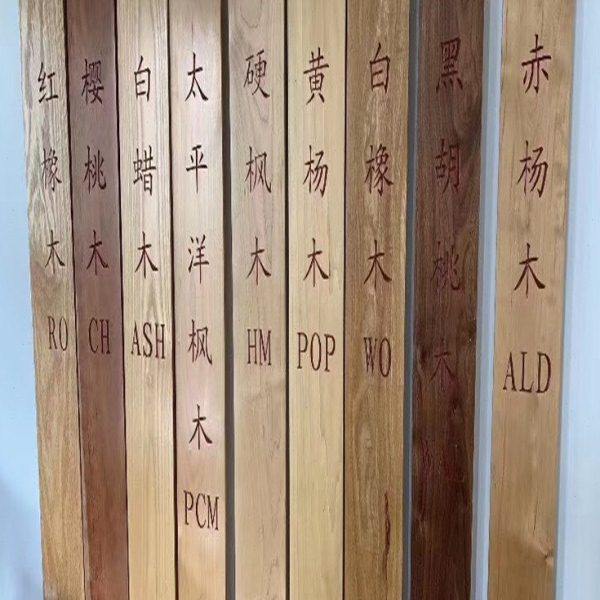 红橡木
RO
樱桃木
CH
白蜡木
ASH
太平洋枫木
PCM
硬枫木
HM
黄杨木
POP
白橡木
WO
黑胡桃木
赤杨木
ALD